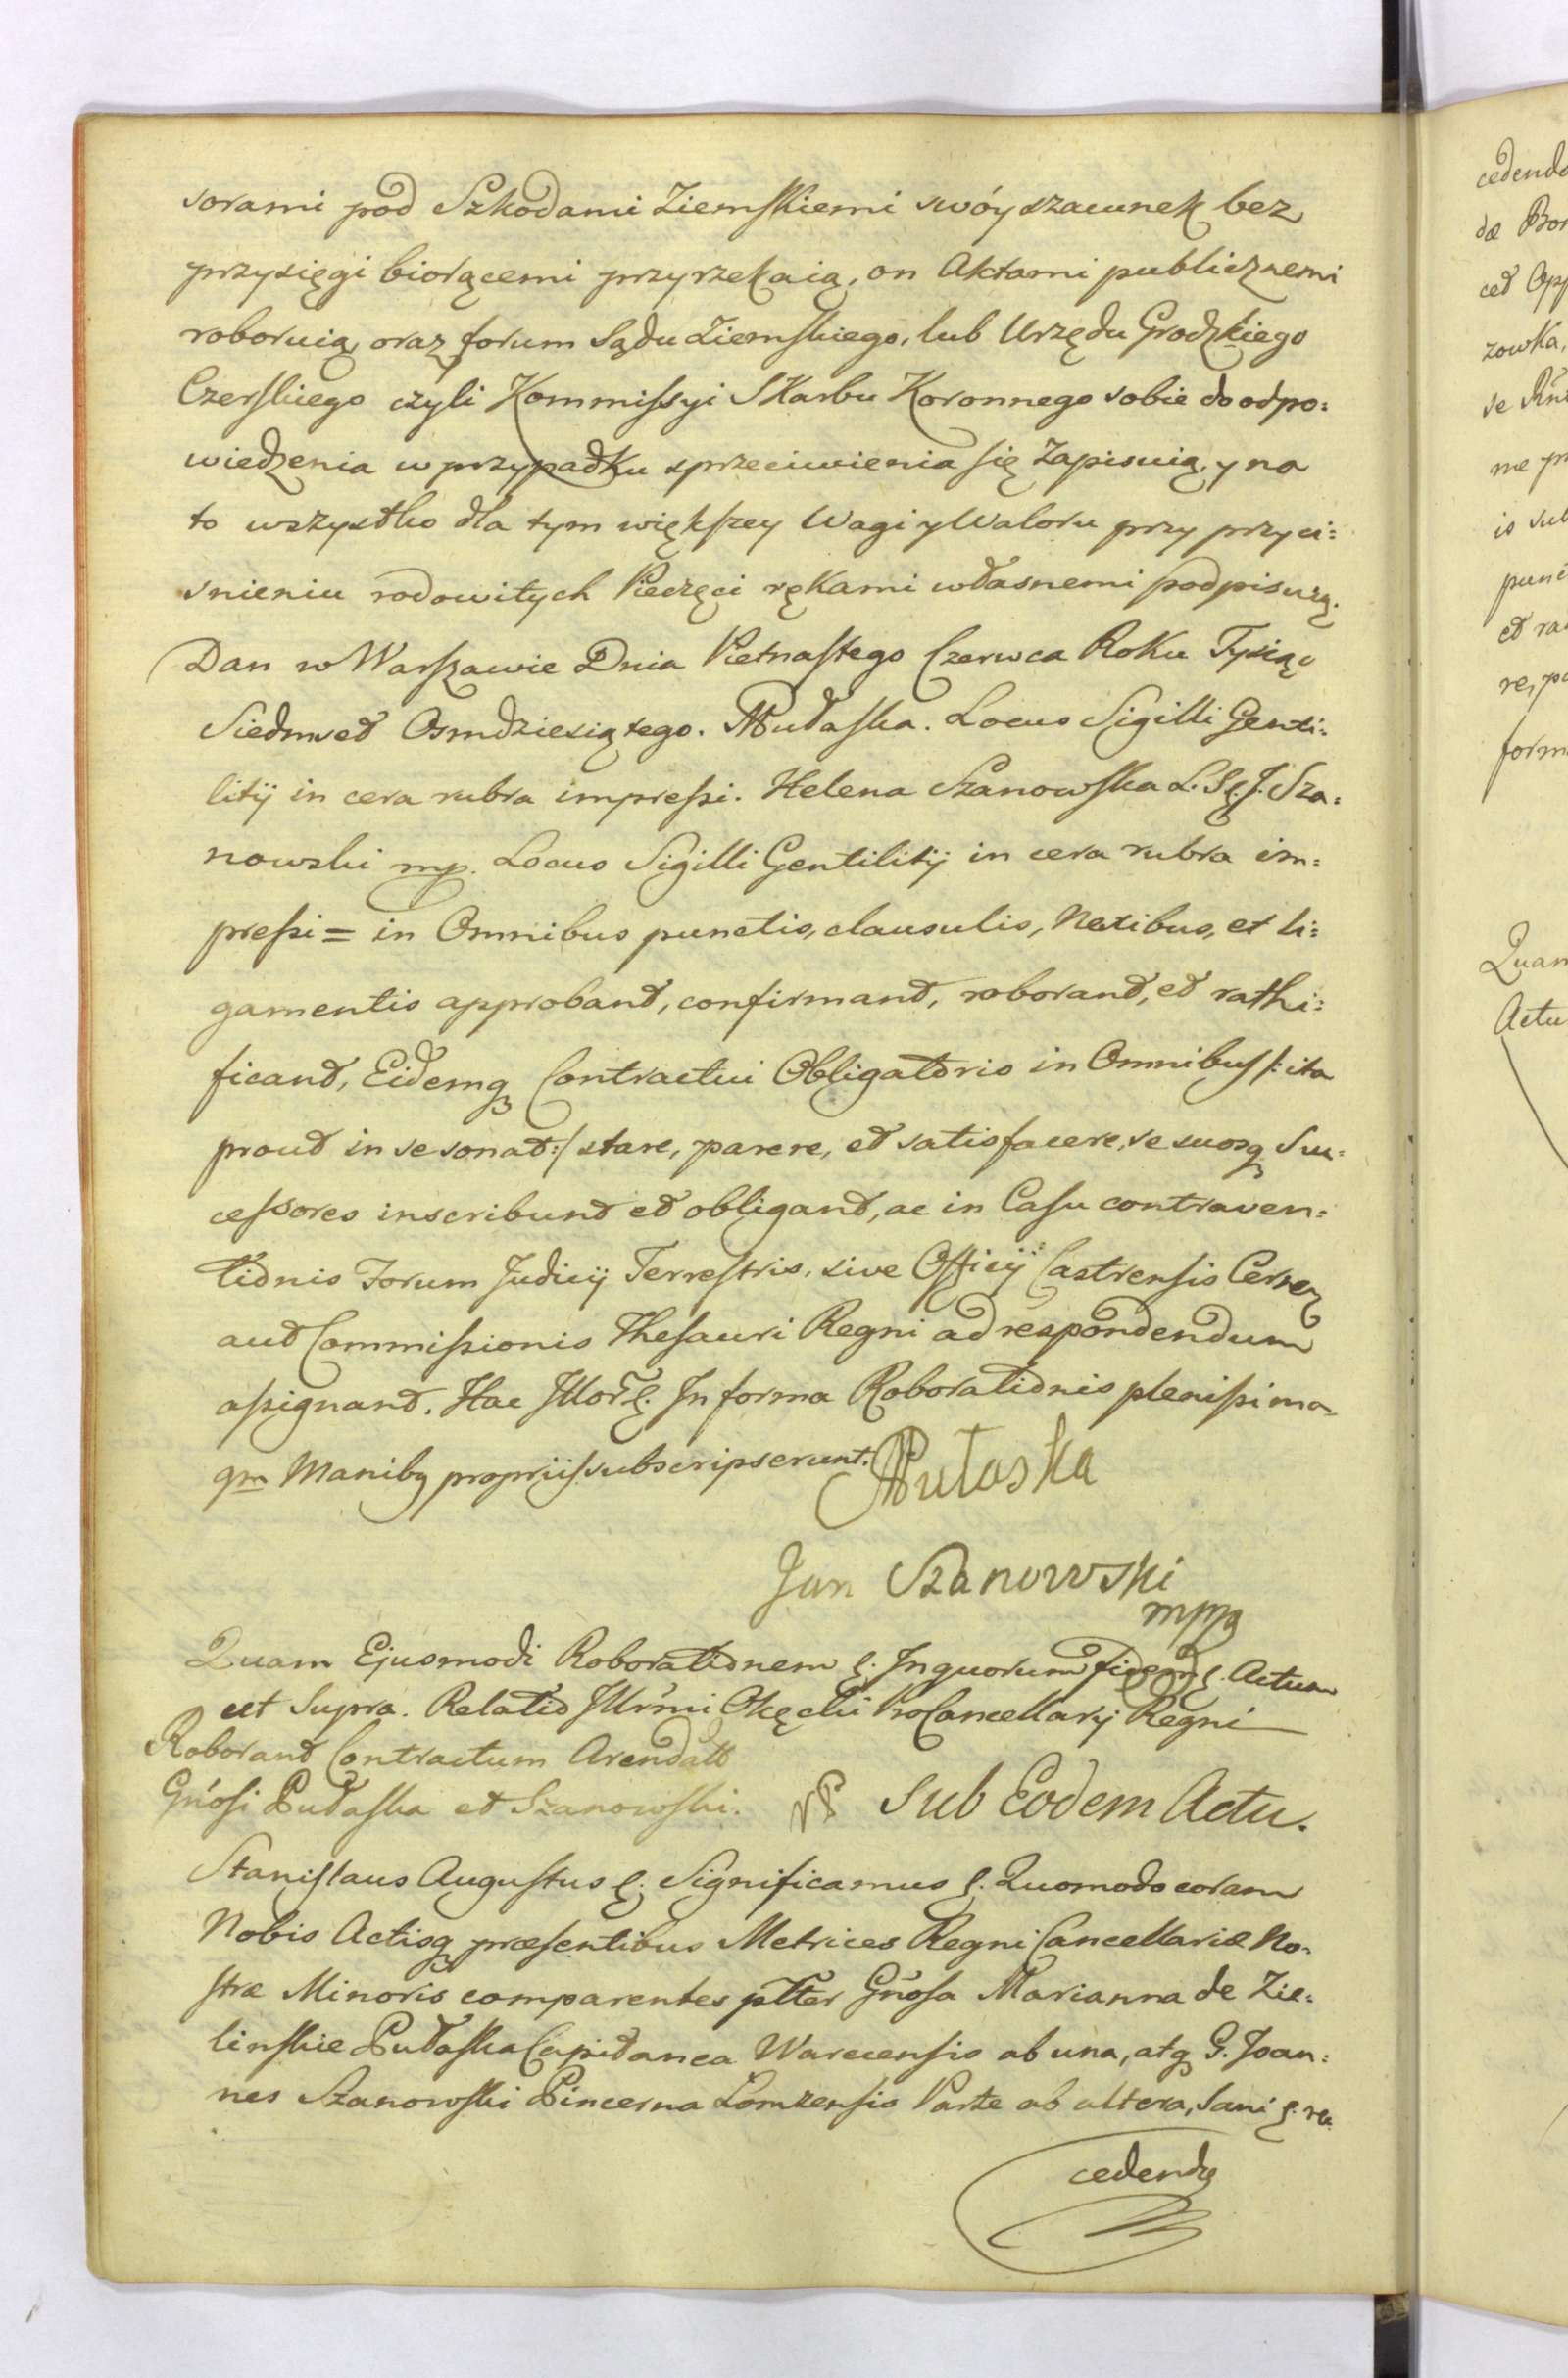 sorami pod Szkodami Ziemskiemi swóy szacunek bez
przysięgi biorącemi przyrzekaią, on Aktami publicznemi
roboruią, oraz forum Sądu Ziemskiego, lub Urzędu Grodzkiego
Czerskiego czyli Kommissyi Skarbu Koronnego sobie do odpo:
wiedzenia w przypadku sprzeciwienia się zapisuią, y na
to wszystko dla tym większey Wagi y Waloru przy przyci:
snieniu rodowitych Pieczęci rękami własnemi podpisuią.
Dan w Warszawie Dnia Pietnastego Czerwca Roku Tysiąc
Siedmset Osmdziesiątego. MPułaska. Locus Sigilli Genti:
litij in cera rubra impressi. Helena Szanowska L. S. J. Sza:
nowski mp. Locus Sigilli Gentilitij in cera rubra im:
pressi = in Omnibus punctis, clausulis, Nexibus, et li:
gamentis approband, confirmand, roborand, et rathi:
ficand, Eidemq Contractui Obligatorio in Omnibus /: ita
prout in se sonat :/ stare, parere, et satisfacere, se suosq Suc:
cessores inscribund et obligand, ac in Casu contraven:
tionis Forum Judicij Terrestris, sive Officij Castrensis Cernen
aut Commissionis Thesauri Regni ad respondendum
assignand. Hac In forma Roborationis plenissima
qm Manibq proprijs subscripserunt. MPułaska
Jan Szanowski
mpp
Quam Ejusmodi Roborationem &. In quorum fidem &. Actum
ut Supra. Relatio Illrmi Okęcki ProCancellarij Regni
Roborand Contractum Arendatt
Gnosi Pułaska et Szanowski. Sub Eodem Actu.
Stanislaus Augustus &. Significamus &. Quomodo coram
Nobis Actisq præsentibus Metrices Regni Cancellariæ No:
stræ Minoris comparentes pltter Gnosa Marianna de Zie:
linskie Pułaska Capitanea Warecensis ab una, atq G. Joan:
nes Szanowski Pincerna Lomzensis Parte ab altera, sani &. re
cedendę
cedendo
dæ
cet
zowka,
se
me
is
et
re,
form
Quam
Actu